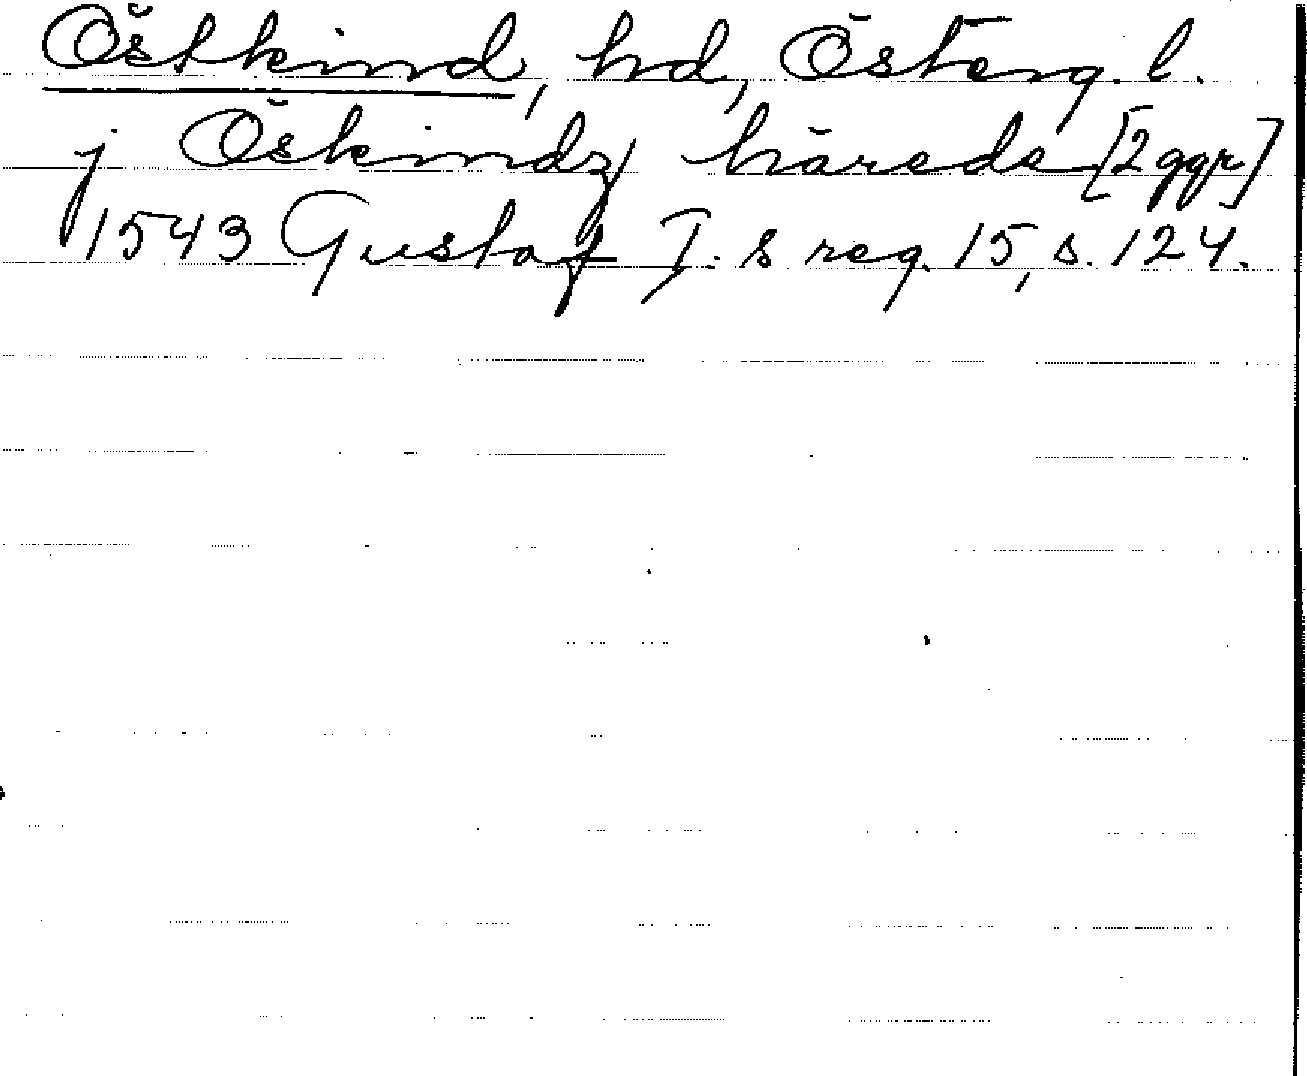 Östkind, hd, Österg. l.
j Öskindz härede [2 ggr]
1543 Gustaf I. s reg. 15, s. 124.